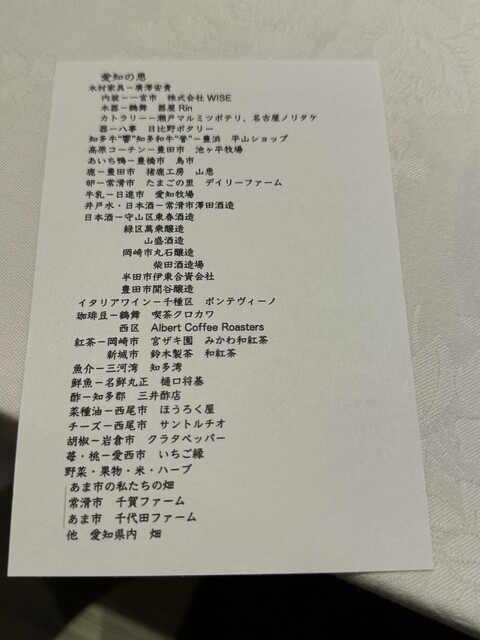 愛知の恵
木村家具－廣澤安貴
内装－一宮市　株式会社 WISE
木器－鶴舞　器屋 Rin
カトラリー－瀬戸マルミツポテリ、名古屋ノリタケ
器－八事　日比野ポタリー
知多牛"響"知多和牛"誉"－豊浜　平山ショップ
高原コーチン－豊田市　池ヶ平牧場
あいち鴨－豊橋市　鳥市
鹿－豊田市　猪鹿工房　山恵
卵－常滑市　たまごの里　デイリーファーム
牛乳－日進市　愛知牧場
井戸水・日本酒－常滑市澤田酒造
日本酒－守山区東春酒造
緑区萬乗醸造
山盛酒造
岡崎市丸石醸造
柴田酒造場
半田市伊東合資会社
豊田市関谷醸造
イタリアワイン－千種区　ポンテヴィーノ
珈琲豆－鶴舞　喫茶クロカワ
西区　Albert Coffee Roasters
紅茶－岡崎市　宮ザキ園　みかわ和紅茶
新城市　鈴木製茶　和紅茶
魚介－三河湾　知多湾
鮮魚－名鮮丸正　樋口将基
酢－知多郡　三井酢店
菜種油－西尾市　ほうろく屋
チーズ－西尾市　サントルチオ
胡椒－岩倉市　クラタペッパー
苺・桃－愛西市　いちご縁
野菜・果物・米・ハーブ
あま市の私たちの畑
常滑市　千賀ファーム
あま市　千代田ファーム
他　愛知県内　畑